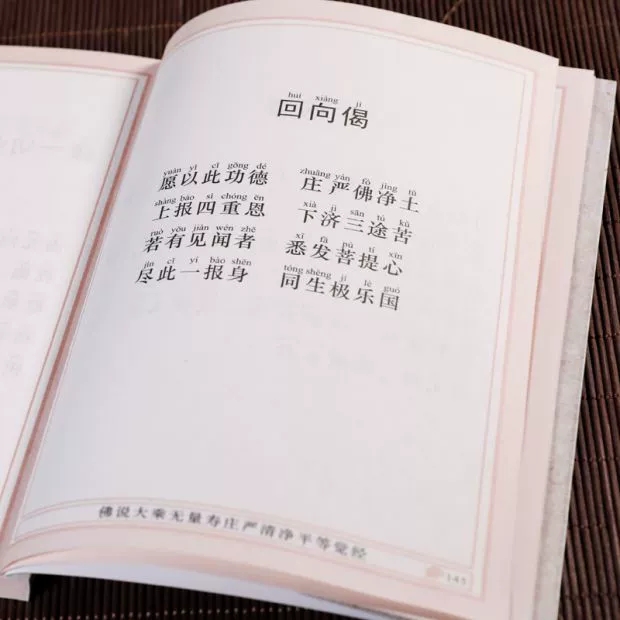 huí xiàng jì
回向偈
yuàn yǐ cǐ gōng dé zhuāng yán fó jìng tǔ
愿以此功德 庄严佛净土
shàng bào sì chóng ēn xià jì sān tú kǔ
上报四重恩 下济三途苦
ruò yǒu jiàn wén zhě xī fā pú tí xīn
若有见闻者 悉发菩提心
jìn cǐ yí bào shēn tóng shēng jí lè guó
尽此一报身 同生极乐国
佛说大乘无量寿庄严清净平等觉经
145